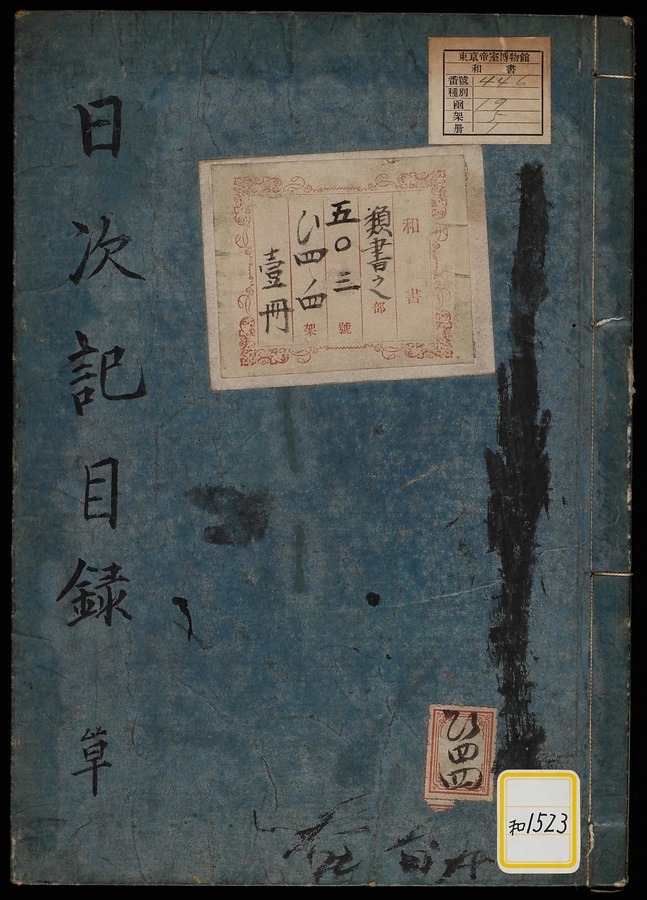 東京帝室博物館
和書
番號 446
種別
函 19
架 5
冊 1
和書
類書之部
五〇三號
ひ四ノ四架
壹冊
日次記目録 草
ひ四四
和1523